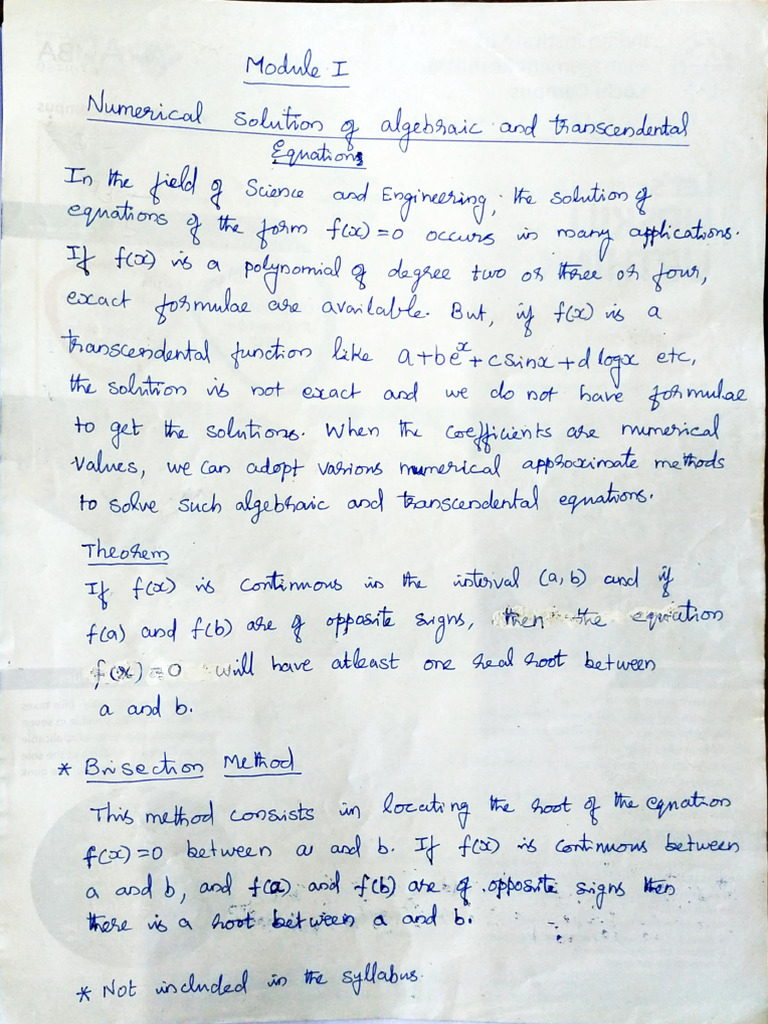 Module I
Numerical solution of algebraic and transcendental
Equations
In the field of Science and Engineering, the solution of
equations of the form f(x)=0 occurs in many applications.
If f(x) is a polynomial of degree two or three or four,
exact formulae are available. But, if f(x) is a
transcendental function like a+be^x+c sinx+d logx etc,
the solution is not exact and we do not have formulae
to get the solutions. When the coefficients are numerical
values, we can adopt various numerical approximate methods
to solve such algebraic and transcendental equations.
Theorem
If f(x) is continuous in the interval (a,b) and if
f(a) and f(b) are of opposite signs, then the equation
f(x)=0 will have atleast one real root between
a and b.
* Bisection Method
This method consists in locating the root of the equation
f(x)=0 between a and b. If f(x) is continuous between
a and b, and f(a) and f(b) are of opposite signs then
there is a root between a and b.
* Not included in the syllabus.